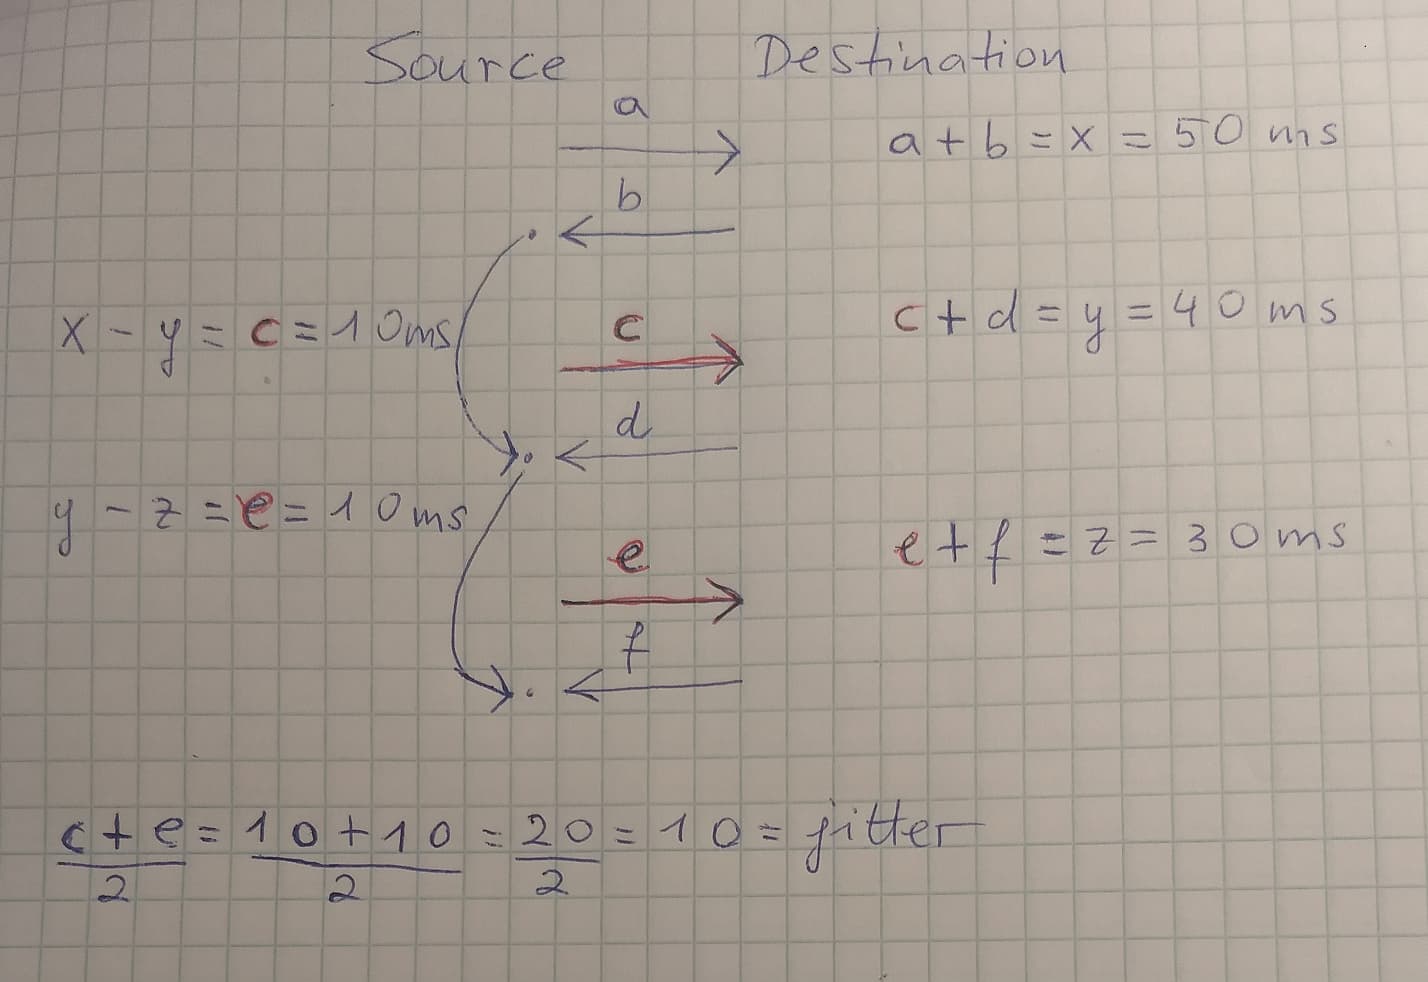 Source Destination
a
a + b = x = 50 ms
b
x - y = c = 10ms
c
c + d = y = 40 ms
d
y - z = e = 10ms
e
e + f = z = 30ms
f
c + e = 10 + 10 = 20 = 10 = jitter
2 2 2